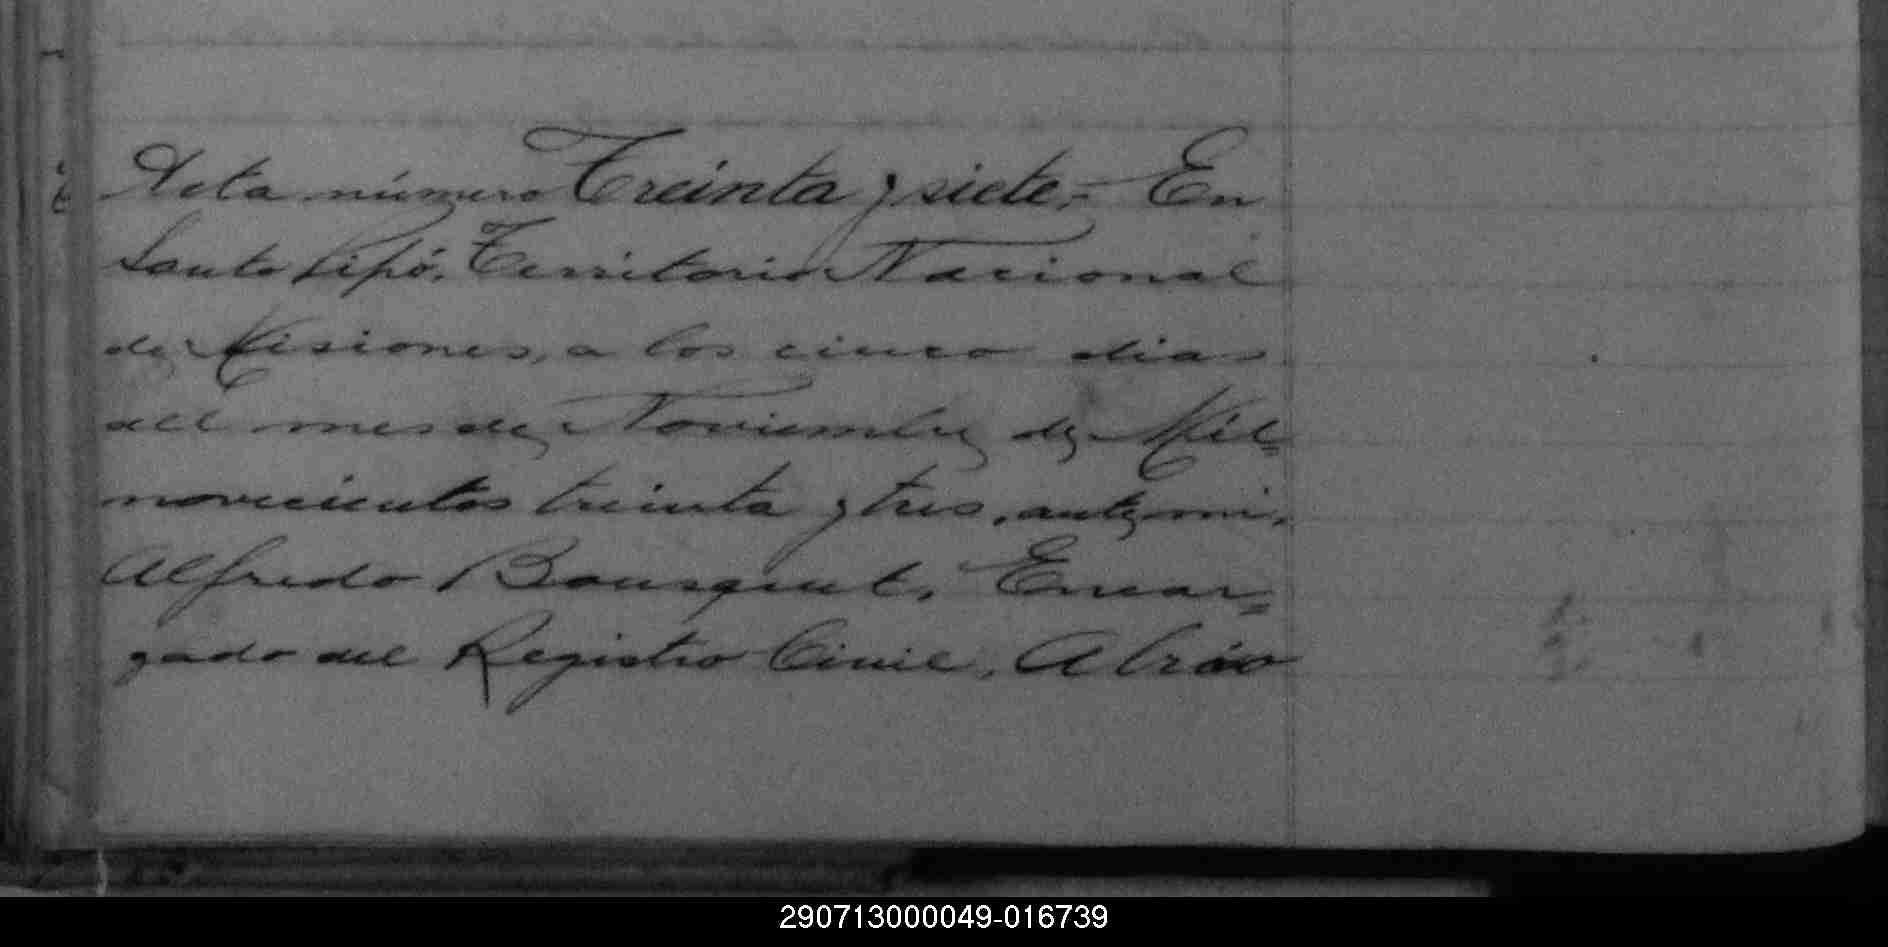 Acta número Treinta y siete.= En
Santo Pipó, Territorio Nacional
de Misiones, a los cinco dias
del mes de Noviembre de Mil
novecientos treinta y tres, ante mi,
Alfredo Bousquet, Encar=
gado del Registro Civil,
290713000049-016739